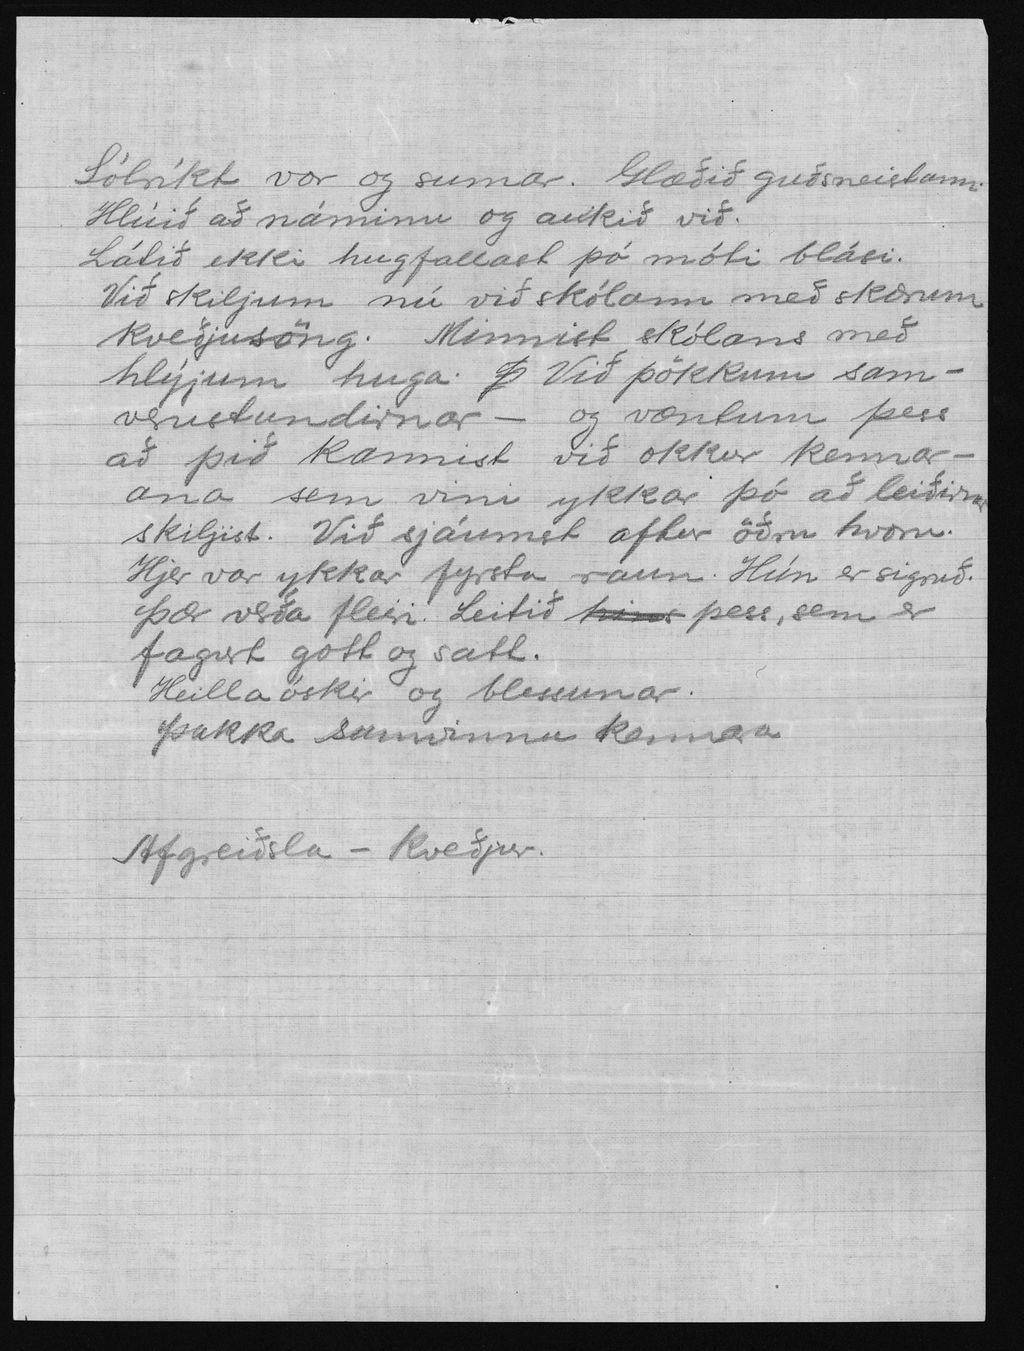 Sólríkt vor og sumar. Glæðið guðsneistann.
Hlúið að náminu og aukið við.
Látið ekki hugfallast þó móti blási.
Við skiljum nú við skólann með skærum
kveðjusöng. Minnist skólans með
hlýjum huga. Við þökkum sam-
verustundirnar - og væntum þess
að þið kannist við okkur kennar-
ana sem vini ykkar þó að leiðirnar
skiljist. Við sjáumst aftur öðru hvoru.
Hjer var ykkar fyrsta raun. Hún er sigruð.
Þær verða fleiri. Leitið hins þess, sem er
fagurt gott og satt.
Heillaóskir og blessunar.
Þakka samvinnu kennara
Afgreiðsla - Kveðjur.